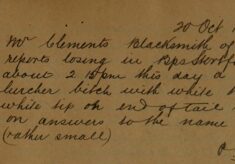 20 Oct 1
Mr Clements Blacksmith of
reports losing in Bps Stortf
about 2.15pm this day a
lurcher bitch with white b
white tip on end of tail
on answers to the name
(rather small)
P.